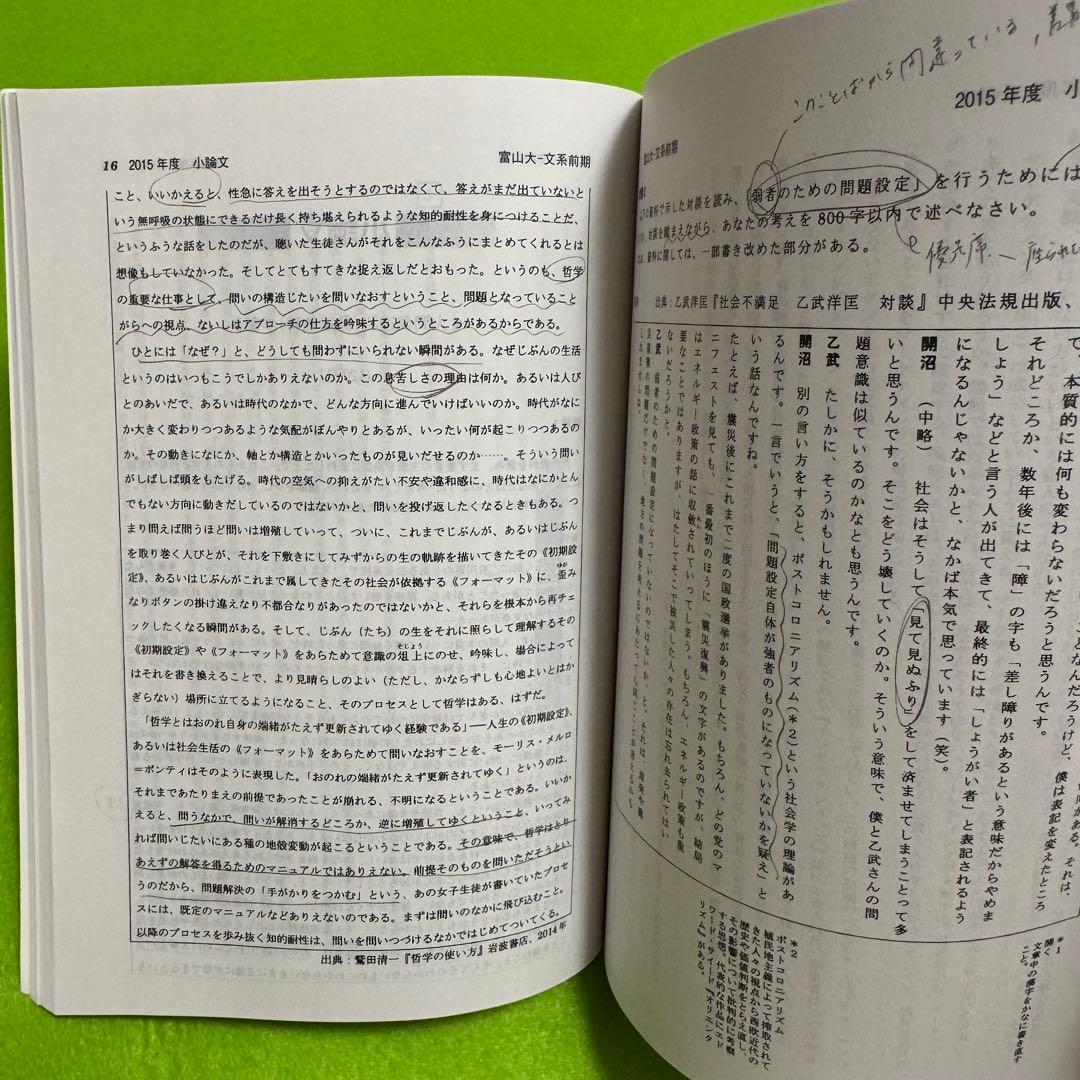 16 2015年度 小論文
富山大-文系前期
こと、いいかえると、性急に答えを出そうとするのではなくて、答えがまだ出ていないと
いう無呼吸の状態にできるだけ長く持ち堪えられるような知的耐性を身につけることだ、
というふうな話をしたのだが、聴いた生徒さんがそれをこんなふうにまとめてくれるとは
想像もしていなかった。そしてとてもすてきな捉え返しだとおもった。というのも、哲学
の重要な仕事として、問いの構造じたいを問いなおすということ、問題となっていること
がらへの視点、ないしはアプローチの仕方を吟味するというところがあるからである。
ひとには「なぜ?」と、どうしても問わずにいられない瞬間がある。なぜじぶんの生活
というのはいつもこうでしかありえないのか。この息苦しさの理由は何か。あるいは人び
とのあいだで、あるいは時代のなかで、どんな方向に進んでいけばいいのか。時代がなに
か大きく変わりつつあるような気配がぼんやりとあるが、いったい何が起こりつつあるの
か。その動きになにか、軸とか構造とかいったものが見いだせるのか……。そういう問い
がしばしば頭をもたげる。時代の空気への抑えがたい不安や違和感に、時代はなにかとん
でもない方向に動きだしているのではないかと、問いを投げ返したくなるときもある。つ
まり問えば問うほど問いは増殖していって、ついに、これまでじぶんが、あるいはじぶん
を取り巻く人びとが、それを下敷きにしてみずからの生の軌跡を描いてきたその《初期設
定》、あるいはじぶんがこれまで属してきたその社会が依拠する《フォーマット》に、歪み
なりボタンの掛け違えなり不都合なりがあったのではないかと、それらを根本から再チェ
ックしたくなる瞬間がある。そして、じぶん(たち)の生をそれに照らして理解するその
《初期設定》や《フォーマット》をあらためて意識の俎上にのせ、吟味し、場合によって
はそれを書き換えることで、より見晴らしのよい(ただし、かならずしも心地よいとはか
ぎらない)場所に立てるようになること、そのプロセスとして哲学はある、はずだ。
「哲学とはおのれ自身の端緒がたえず更新されてゆく経験である」――人生の《初期設定》、
あるいは社会生活の《フォーマット》をあらためて問いなおすことを、モーリス・メルロ
=ポンティはそのように表現した。「おのれの端緒がたえず更新されてゆく」というのは、
それまであたりまえの前提であったことが崩れる、不明になるということである。いいか
えると、問うなかで、問いが解消するどころか、逆に増殖してゆくということ、いってみ
れば問いじたいにある種の地殻変動が起こるということである。その意味で、哲学はとり
あえずの解答を得るためのマニュアルではありえない。前提そのものを問いただそうとい
うのだから、問題解決の「手がかりをつかむ」という、あの女子生徒が書いていたプロセ
スには、既定のマニュアルなどありえないのである。まずは問いのなかに飛び込むこと。
以降のプロセスを歩み抜く知的耐性は、問いを問いつづけるなかではじめてついてくる。
出典:鷲田清一『哲学の使い方』岩波書店、2014年
このことばから間違っている、
2015年度 小
富山大-文系前期
下の資料で示した対談を読み、「弱者のための問題設定」を行うためには
対談を踏まえながら、あなたの考えを800字以内で述べなさい。
資料に関しては、一部書き改めた部分がある。
優先席
出典:乙武洋匡『社会不満足 乙武洋匡 対談』中央法規出版、
本質的には何も変わらないだろうと思うんです。
それどころか、数年後には「障」の字も「差し障りがあるという意味だからやめま
しょう」などと言う人が出てきて、最終的には「しょうがい者」と表記されるよう
になるんじゃないかと、なかば本気で思っています(笑)。
(中略)
開沼 社会はそうして「見て見ぬふり」をして済ませてしまうことって多
いと思うんです。そこをどう壊していくのか。そういう意味で、僕と乙武さんの問
題意識は似ているのかなとも思うんです。
乙武 たしかに、そうかもしれません。
開沼 別の言い方をすると、ポストコロニアリズム(*2)という社会学の理論があ
るんです。一言でいうと、「問題設定自体が強者のものになっていないかを疑え」と
いう話なんですね。
たとえば、震災後にこれまで二度の国政選挙がありました。もちろん、どの党のマ
ニフェストを見ても、一番最初のほうに「震災復興」の文字があるのですが、結局
はエネルギー政策の話に収斂されていってしまう。もちろん、エネルギー政策も重
要なことではありますが、はたしてそこで被災した人々の存在は忘れ去られてはい
ないだろうかと。
乙武 弱者のための問題設定になっていないのではないか、と。それは、
*1
開く
文章中の漢字をかなに書き直すこと。
*2
ポストコロニアリズム
植民地主義によって搾取されて
きた人々の視点から西欧近代の
歴史や価値判断をとらえ直し、
その影響について批判的に考察
する思想。代表的な作品にエド
ワード・サイード『オリエンタ
リズム』がある。